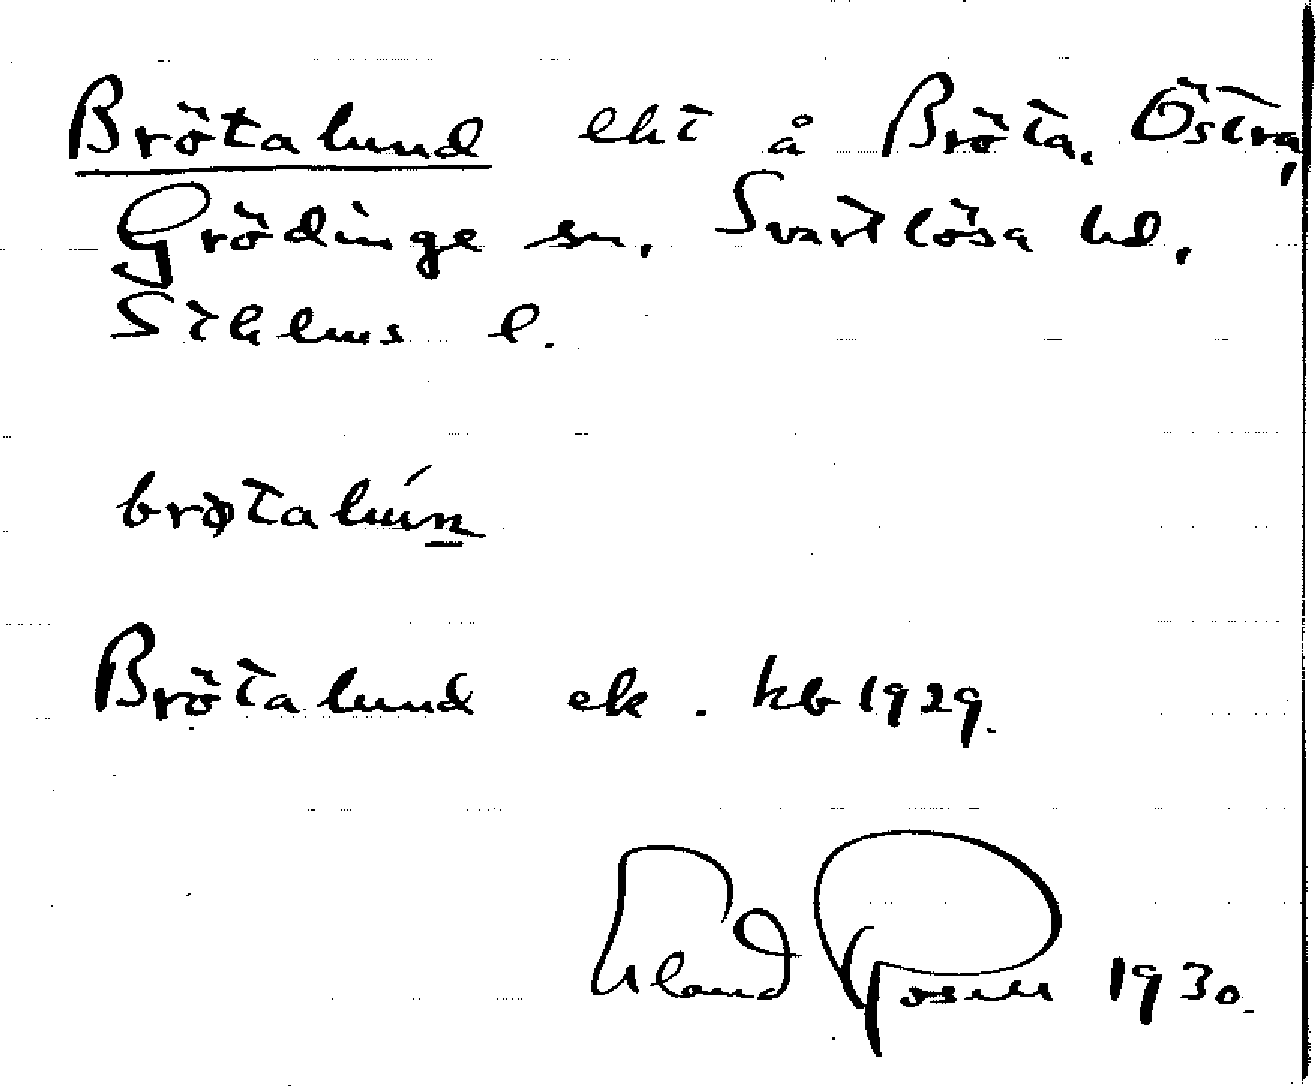 Brötalund eht å Bröta, Östra,
Grödinge sn, Svartlösa hd,
Sthlms l.
brøtalún
Brötalund ek. kb 1929.
Erland Rosell 1930.